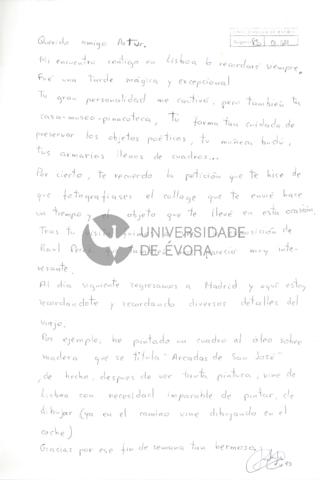 Querido amigo Artur.
Mi encuentro contigo en Lisboa lo recordaré siempre.
Fué una tarde mágica y excepcional
Tu gran personalidad me cautivó, pero también tu
casa-museo-pinacoteca, tu forma tan cuidada de
preservar los objetos poéticos, tu muñeca budú,
tus armarios llenos de cuadros...
Por cierto, te recuerdo la petición que te hice de
que fotografiases el collage que te envié hace
un tiempo y el objeto que te llevé en esta ocasión.
Tras tu exposición de
Raul Perez muy inte-
resante.
Al día siguiente regresamos a Madrid y aquí estoy
recordandote y recordando diversos detalles del
viaje.
Por ejemplo, he pintado un cuadro al óleo sobre
madera que se titula "Arcadas de San José"
, de hecho, despues de ver tanta pintura, vine de
Lisboa con necesidad imparable de pintar, de
dibujar (ya en el camino vine dibujando en el
coche)
Gracias por ese fin de semana tan hermoso
UNIVERSIDADE
DE ÉVORA